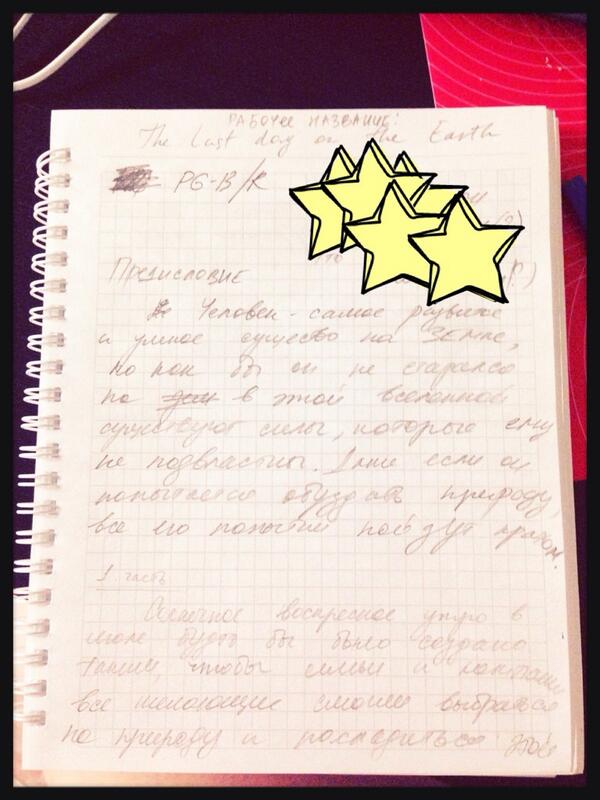 РАБОЧЕЕ НАЗВАНИЕ:
The Last day on the Earth
PG-13/R
(?)
то
Предисловие
Человек - самое развитое
и умное существо на Земле,
но как бы он не старался
но в этой вселенной
существуют силы, которые ему
не подвластны. Даже если он
попытается обуздать природу,
все его попытки пойдут прахом.
1 часть
Солнечное воскресное утро в
июле будто бы было создано
таким, чтобы семьи и компании
все желающие смогли выбраться
на природу и насладиться этой